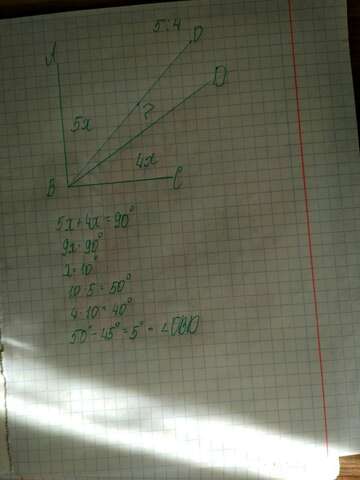 5:4
A
D
D
5x
?
4x
B
C
5x+4x=90°
9x=90°
x=10°
10·5=50°
4·10=40°
50°-45°=5° - ∠DBD